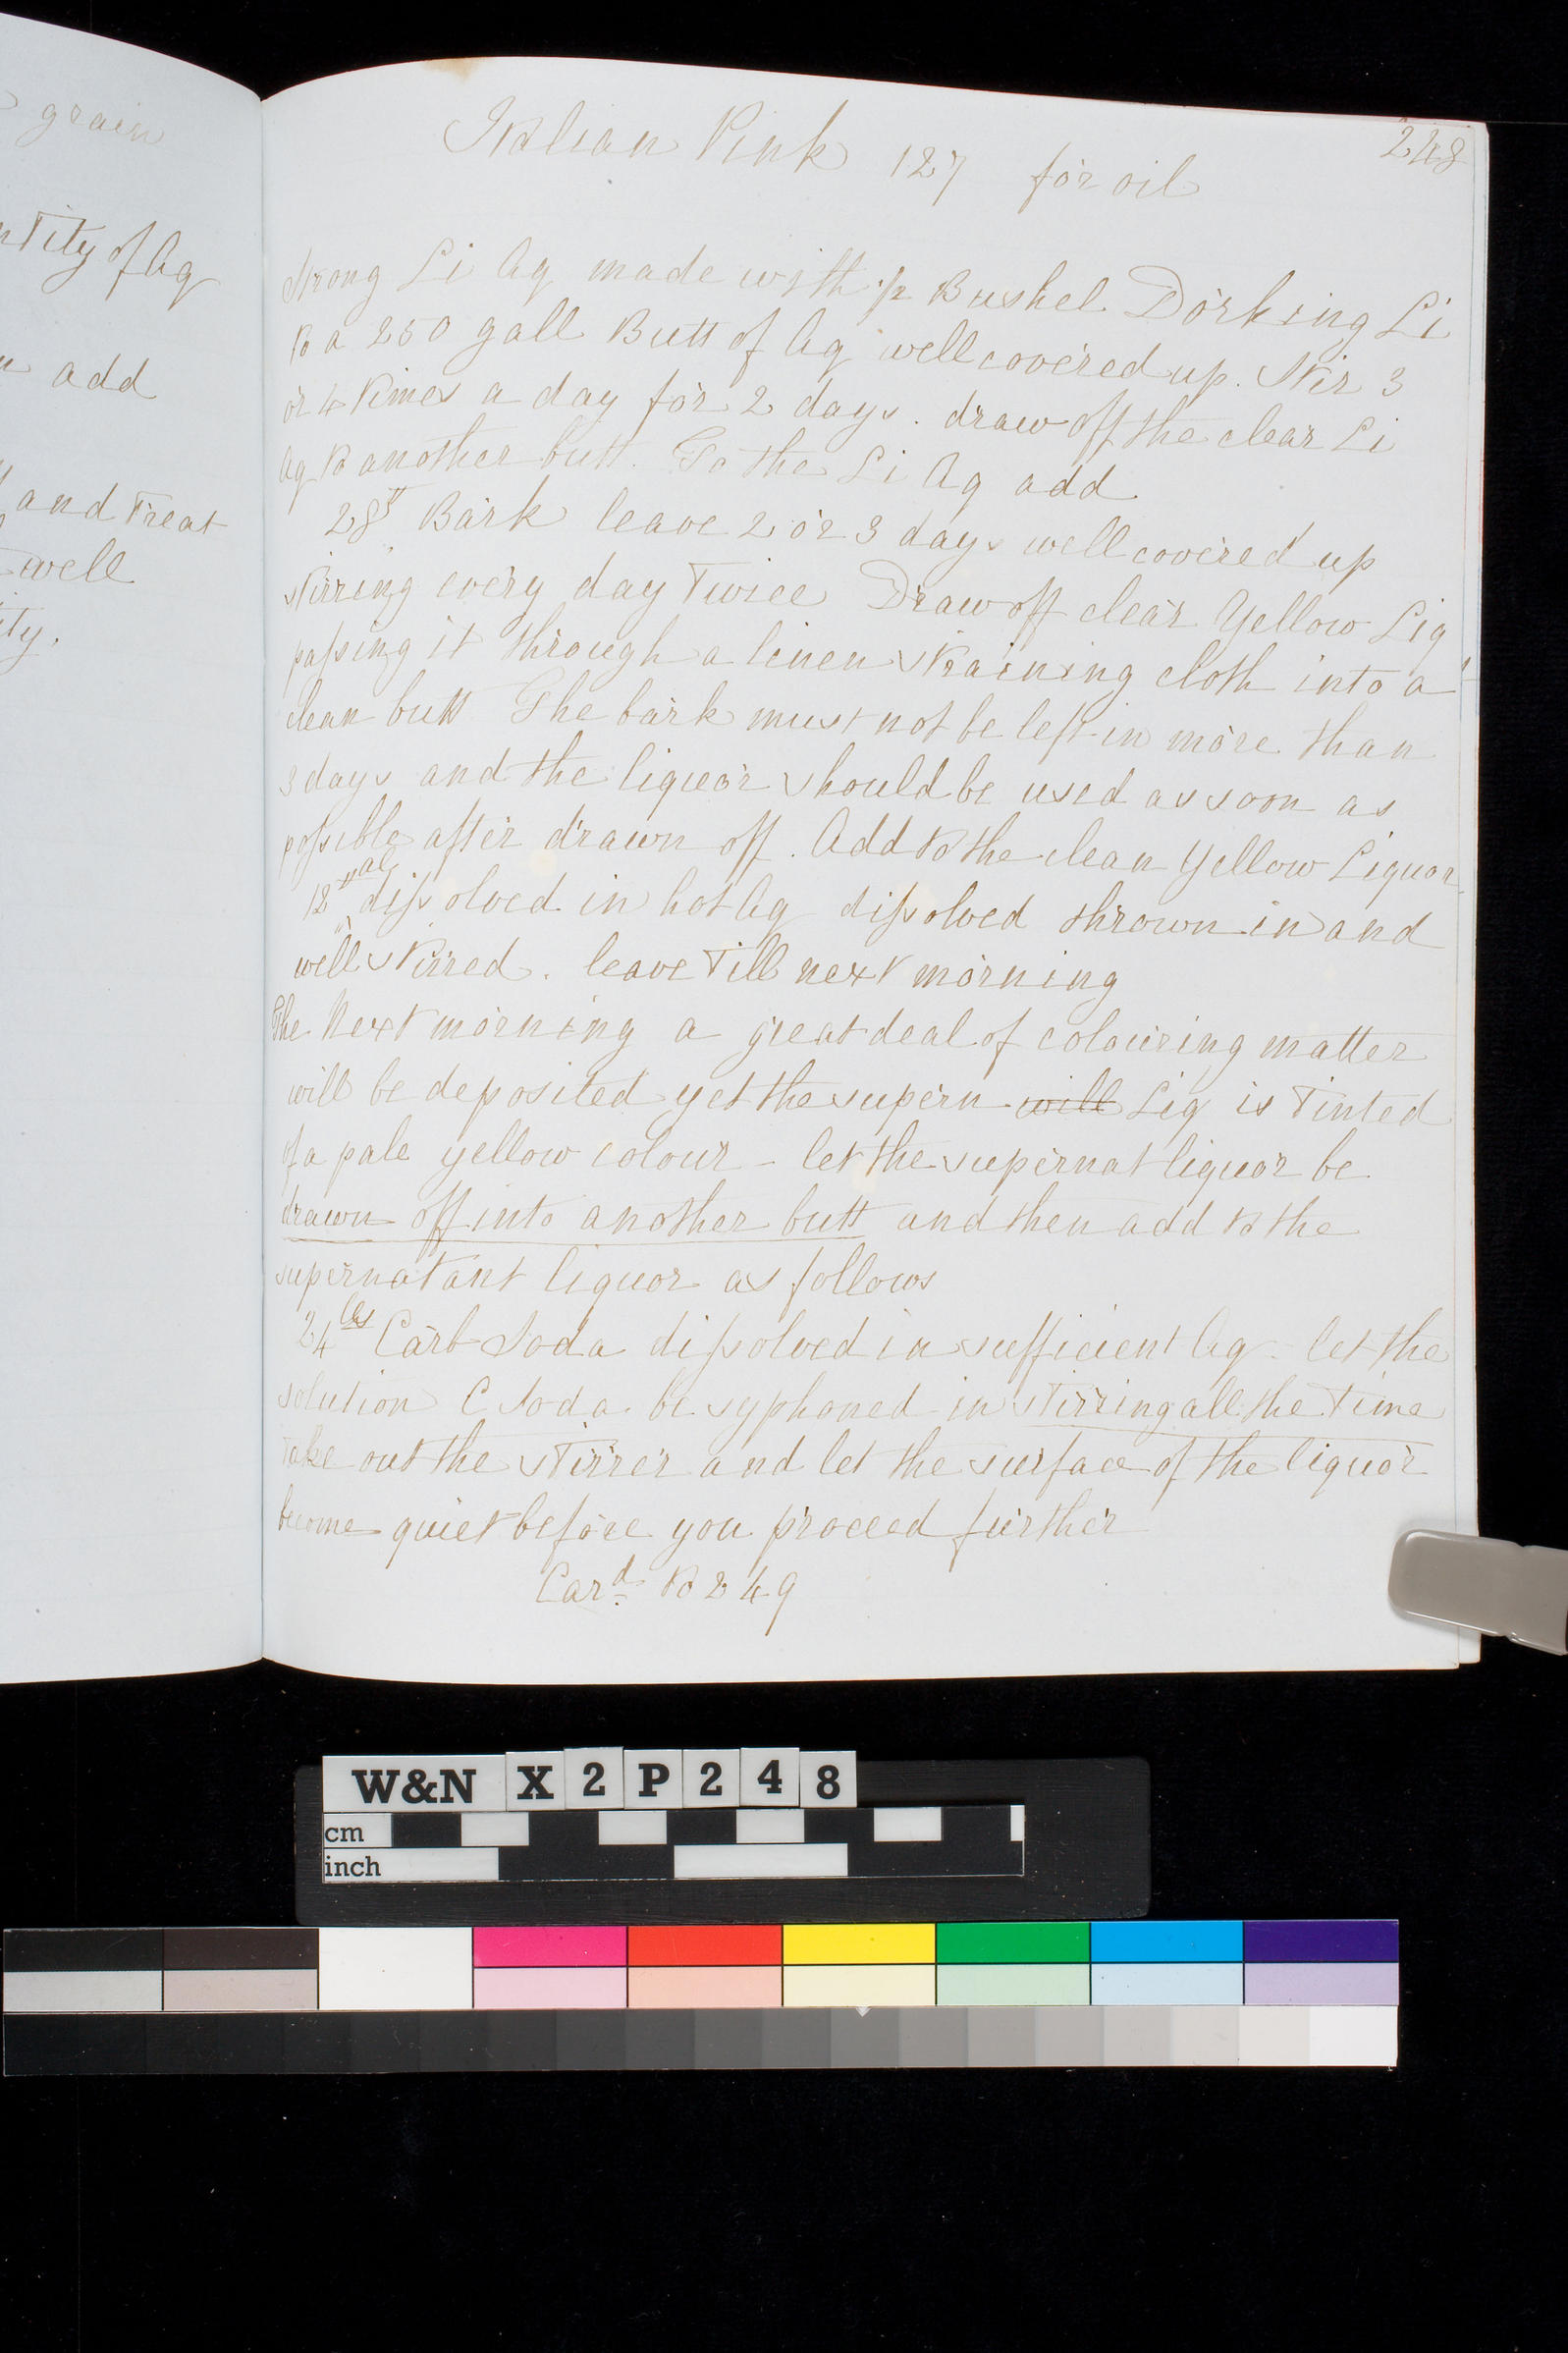 grain
ntity of Aq
add
and Treat
well
ity.
248
Italian Pink 127 for oil
Strong Li Aq made with 1/2 Bushel Dorking Li
to a 250 gall Butt of Aq well covered up. Stir 3
or 4 times a day for 2 days. draw off the clear Li
Aq to another butt. To the Li Aq add
28" Bark leave 2 or 3 days well covered up
stirring every day Twice Draw off clear Yellow Liq
passing it through a linen straining cloth into a
clean butt The bark must not be left in more than
3 days and the liquor should be used as soon as
possible after drawn off. Add to the clean Yellow Liquor
18" al dissolved in hot Aq dissolved thrown in and
well stirred. leave Till next morning
The Next morning a great deal of colouring matter
will be deposited yet the supern will Liq is Tinted
of a pale yellow colour - let the supernat liquor be
drawn off into another butt and then add to the
supernatant liquor as follows
24 lbs Carb Soda dissolved in sufficient Aq - let the
solution C Soda be syphoned in stirring all the Time
Take out the stirrer and let the surface of the liquor
become quiet before you proceed further
Card to 249
W&N X 2 P 2 4 8
cm
inch